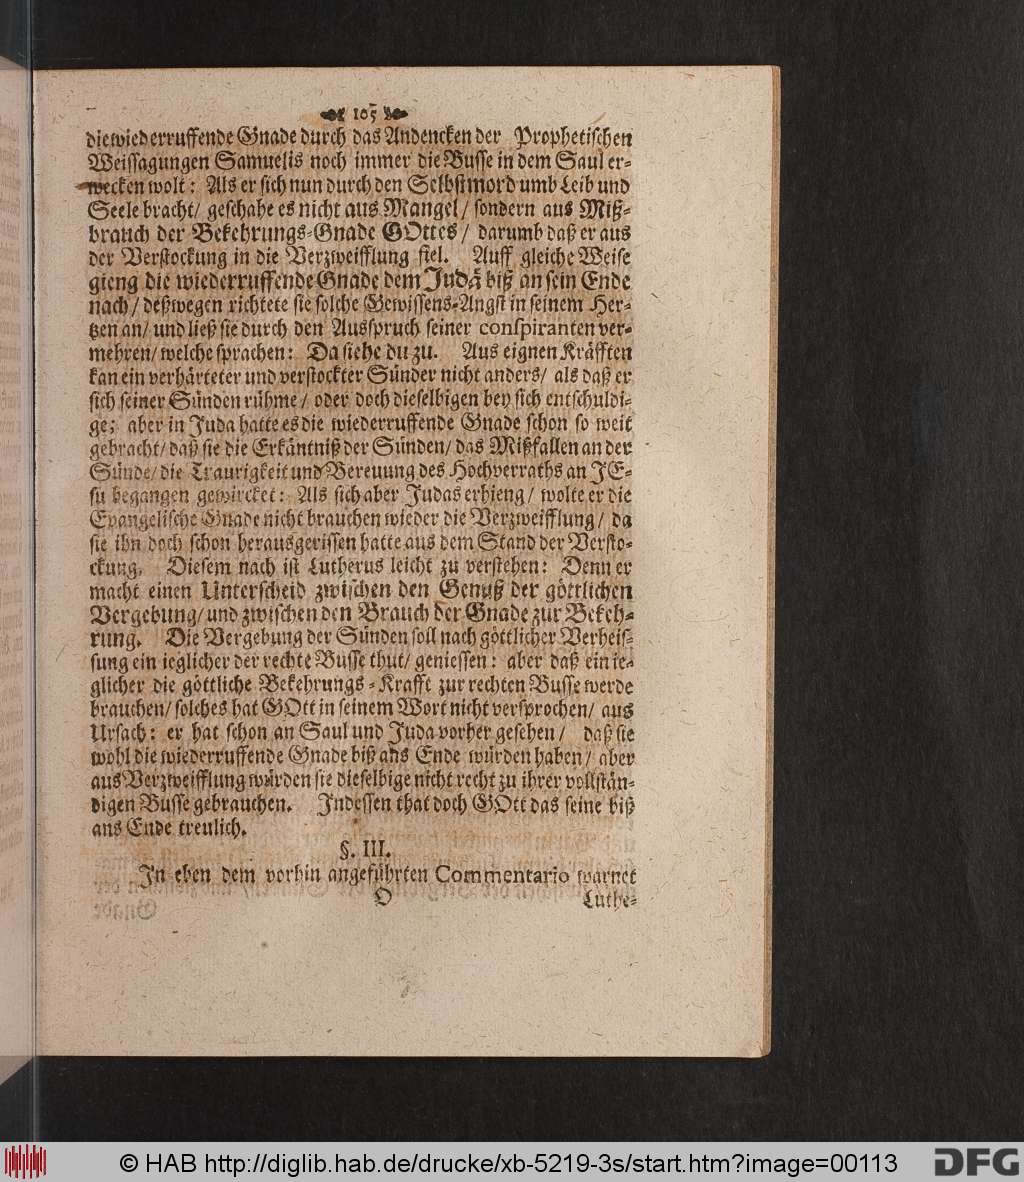 105
die wiederruffende Gnade durch das Andencken der Prophetischen
Weissagungen Samuelis noch immer die Busse in dem Saul er-
wecken wolt: Als er sich nun durch den Selbstmord umb Leib und
Seele bracht/ geschahe es nicht aus Mangel/ sondern aus Miß-
brauch der Bekehrungs-Gnade GOttes/ darumb daß er aus
der Verstockung in die Verzweifflung fiel. Auff gleiche Weise
gieng die wiederruffende Gnade dem Judä biß an sein Ende
nach/ deßwegen richtete sie solche Gewissens-Angst in seinem Her-
tzen an/ und ließ sie durch den Ausspruch seiner conspiranten ver-
mehren/ welche sprachen: Da siehe du zu. Aus eignen Kräfften
kan ein verhärteter und verstockter Sünder nicht anders/ als daß er
sich seiner Sünden rühme/ oder doch dieselbigen bey sich entschuldi-
ge; aber in Juda hatte es die wiederruffende Gnade schon so weit
gebracht/ daß sie die Erkäntniß der Sünden/ das Mißfallen an der
Sünde/ die Traurigkeit und Bereuung des Hochverraths an JE-
su begangen gewircket: Als sich aber Judas erhieng/ wolte er die
Evangelische Gnade nicht brauchen wieder die Verzweifflung/ da
sie ihn doch schon herausgerissen hatte aus dem Stand der Versto-
ckung. Diesem nach ist Lutherus leicht zu verstehen: Denn er
macht einen Unterscheid zwischen den Genuß der göttlichen
Vergebung/ und zwischen den Brauch der Gnade zur Bekeh-
rung. Die Vergebung der Sünden soll nach göttlicher Verheis-
sung ein ieglicher der rechte Busse thut/ geniessen: aber daß ein ie-
glicher die göttliche Bekehrungs-Krafft zur rechten Busse werde
brauchen/ solches hat GOtt in seinem Wort nicht versprochen/ aus
Ursach: er hat schon an Saul und Juda vorher gesehen/ daß sie
wohl die wiederruffende Gnade biß ans Ende würden haben/ aber
aus Verzweifflung würden sie dieselbige nicht recht zu ihrer vollstän-
digen Busse gebrauchen. Indessen that doch GOtt das seine biß
ans Ende treulich.
§. III.
In eben dem vorhin angeführten Commentario warnet
O Luthe-
© HAB http://diglib.hab.de/drucke/xb-5219-3s/start.htm?image=00113
DFG